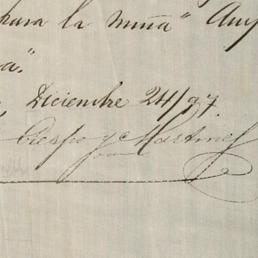 para la niña" Au
a."
Diciembre 24/97.
Crespo y C Martinez